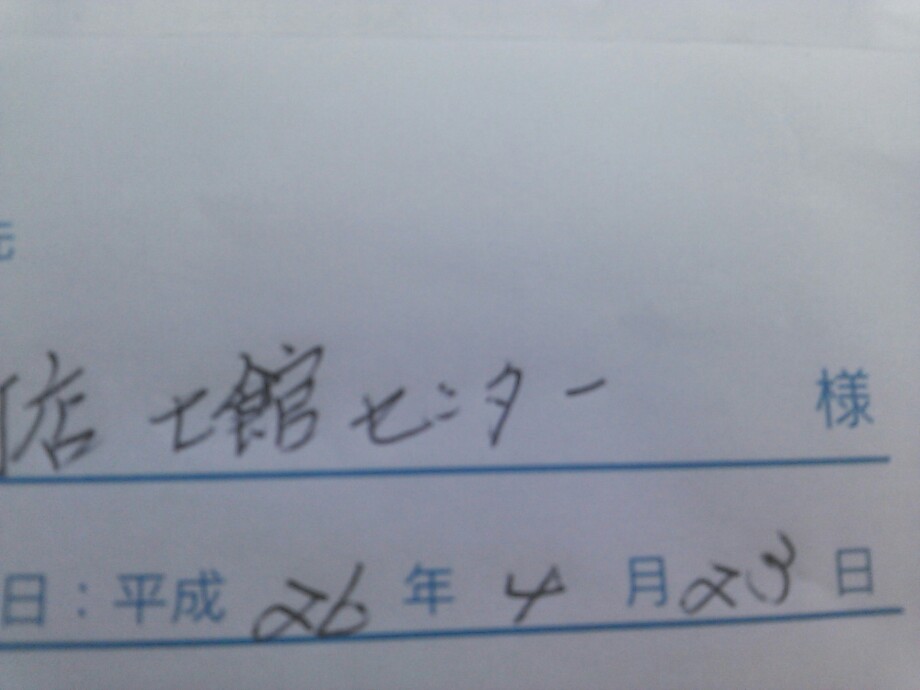 店 七館センター 様
日：平成 26 年 4 月 23 日